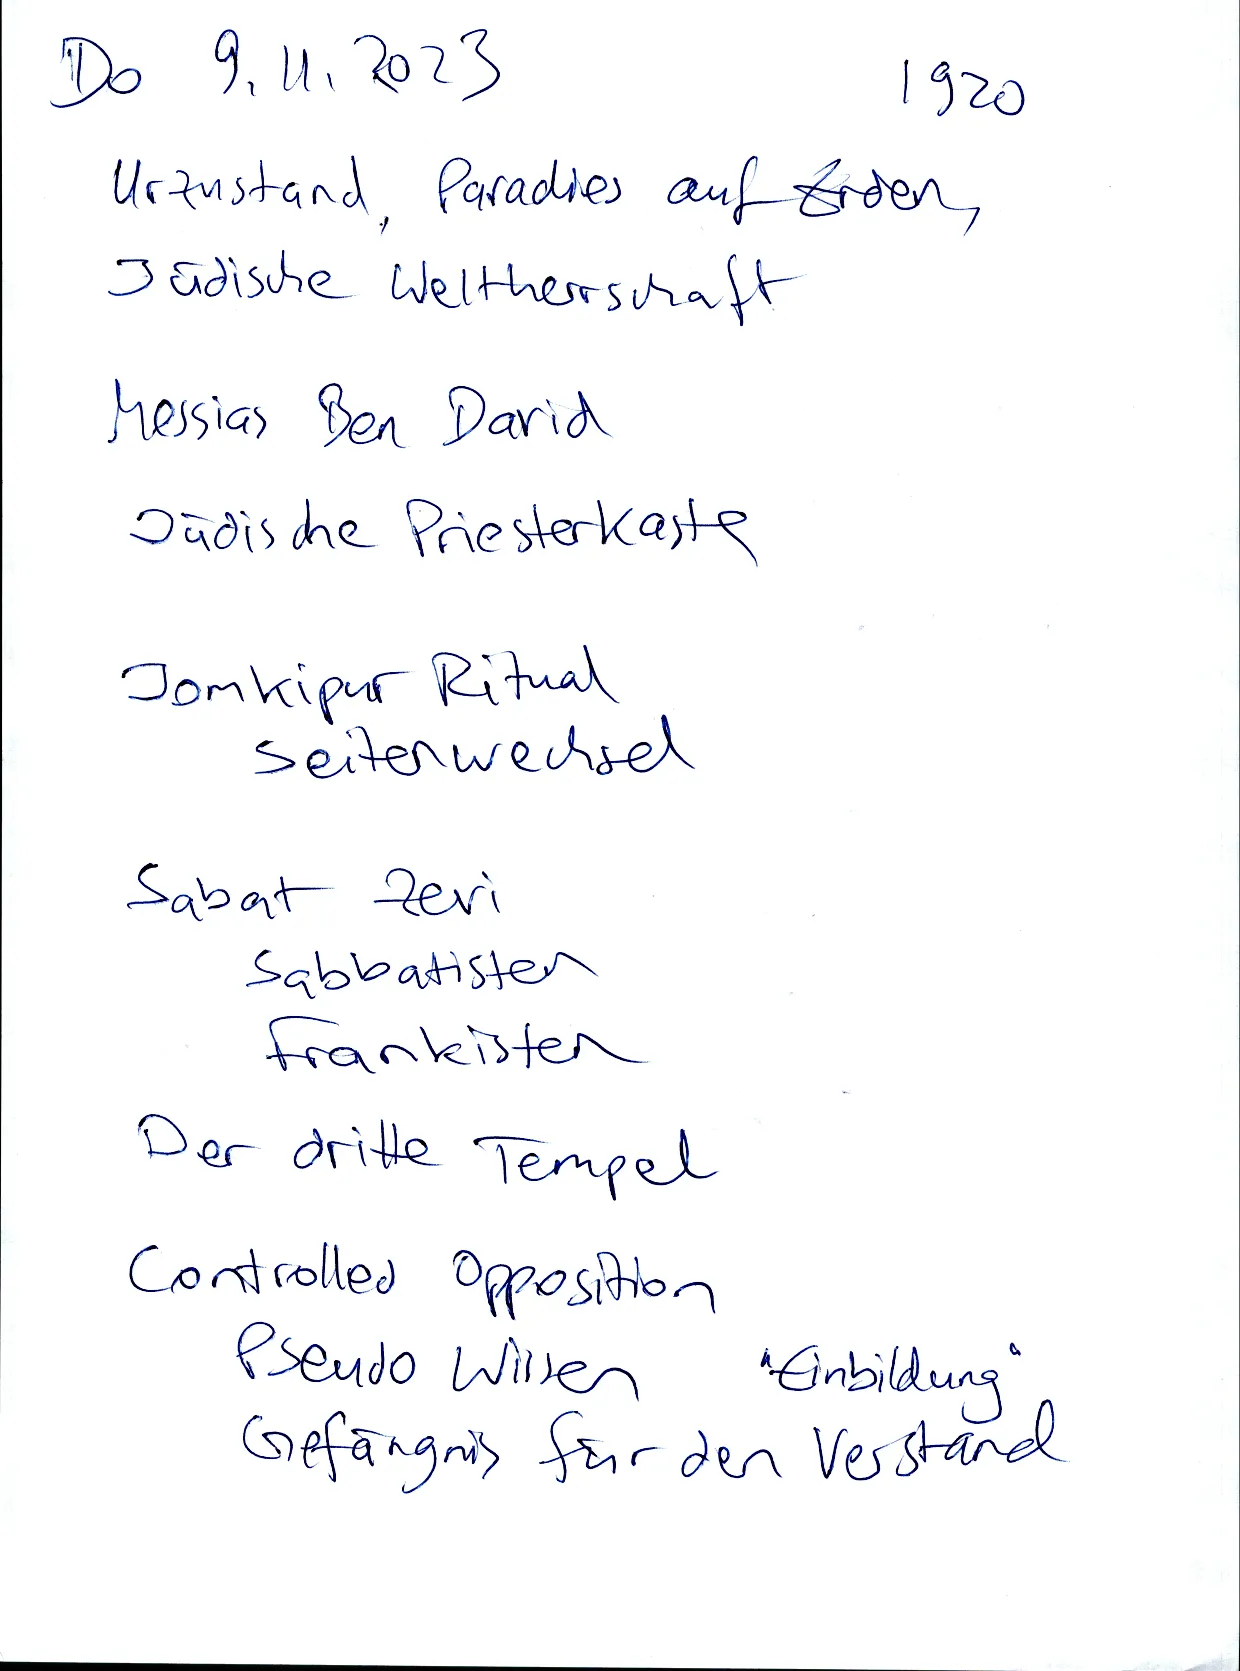 Do 9.11.2023 1920
Urzustand, Paradies auf Erden,
Jüdische Weltherrschaft
Messias Ben David
Jüdische Priesterkaste
Jomkipur Ritual
Seitenwechsel
Sabat Zevi
Sabbatisten
Frankisten
Der dritte Tempel
Controlled Opposition
Pseudo Wissen "Einbildung"
Gefängnis für den Verstand